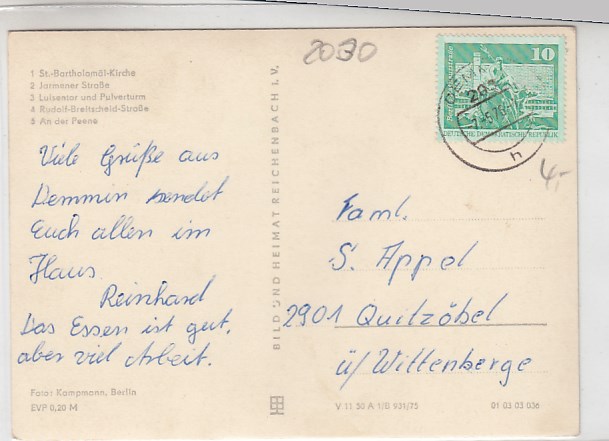 2030
1 St.-Bartholomäi-Kirche
2 Jarmener Straße
3 Luisentor und Pulverturm
4 Rudolf-Breitscheid-Straße
5 An der Peene
Viele Grüße aus
Demmin sendet
Euch allen im
Haus
Reinhard
Das Essen ist gut,
aber viel Arbeit.
Foto: Kampmann, Berlin
EVP 0,20 M
BILD UND HEIMAT REICHENBACH I. V.
10
DEUTSCHE DEMOKRATISCHE REPUBLIK
h
4,-
Faml.
S. Appel
2901 Quitzöbel
ü/ Wittenberge
V 11 50 A 1/B 931/75
01 03 05 036